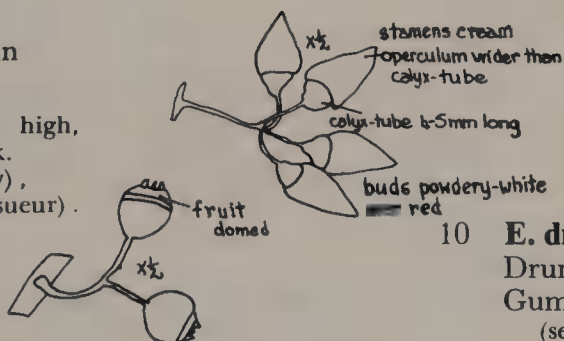 n
high,
x.
y),
sueur).
x½
stamens cream
operculum wider than
calyx-tube
calyx-tube 4-5mm long
buds powdery-white
red
fruit
domed
x½
10 E. dr
Drur
Gum
(se